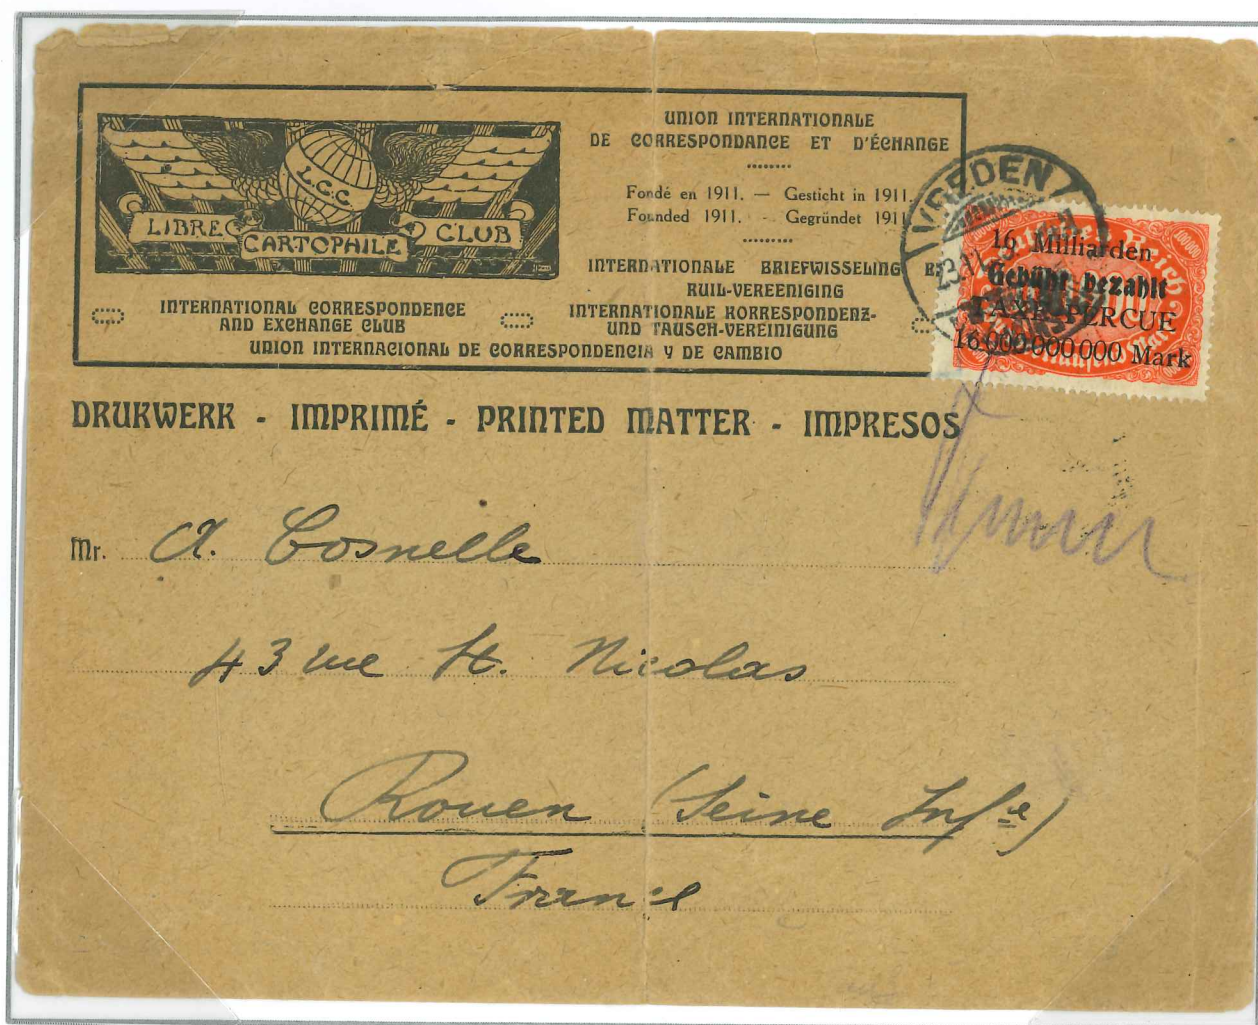 L.C.C.
LIBRE CARTOPHILE CLUB
UNION INTERNATIONALE
DE CORRESPONDANCE ET D'ÉCHANGE
Fondé en 1911. — Gesticht in 1911.
Founded 1911. - Gegründet 1911
INTERNATIONALE BRIEFWISSELING
RUIL-VEREENIGING
INTERNATIONAL CORRESPONDENCE
AND EXCHANGE CLUB
INTERNATIONALE KORRESPONDENZ-
UND TAUSCH-VEREINIGUNG
UNION INTERNACIONAL DE CORRESPONDENCIA Y DE CAMBIO
VREDEN
16 Milliarden
Gebühr bezahlt
TAXE PERCUE
16 000 000 000 Mark
DRUKWERK - IMPRIMÉ - PRINTED MATTER - IMPRESOS
Mr. A. Cosnelle
43 rue St. Nicolas
Rouen (Seine Infre)
France